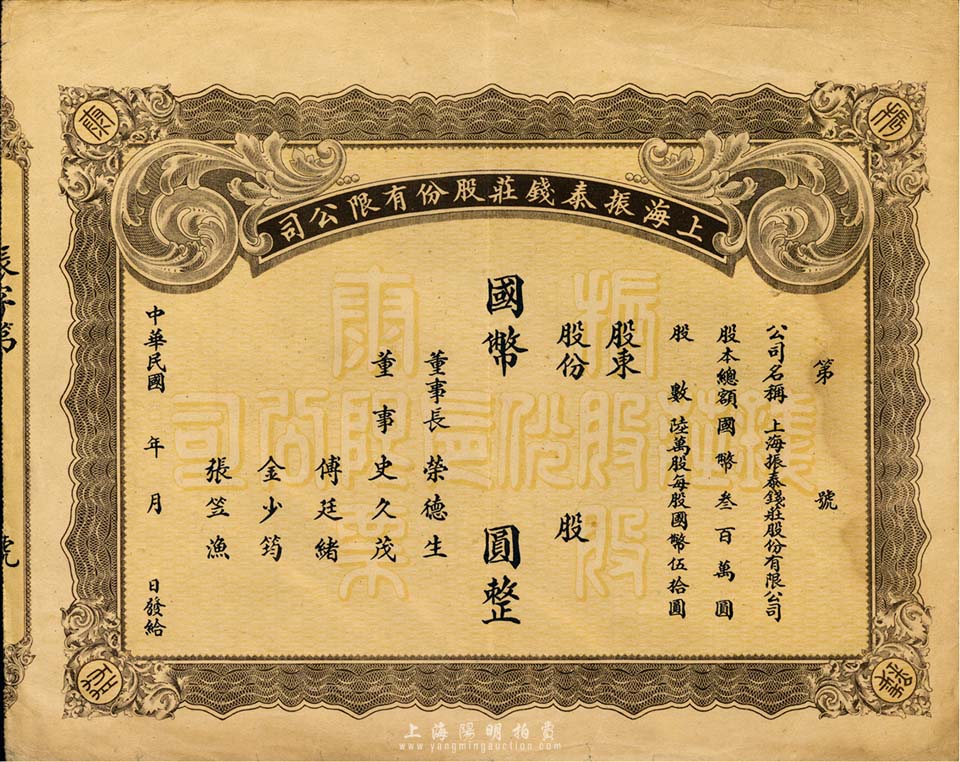 上海振泰錢莊股份有限公司
第　號
公司名稱　上海振泰錢莊股份有限公司
股本總額國幣叁百萬圓
股　數　陸萬股每股國幣伍拾圓
股東
股份　股
國幣　圓整
董事長　榮德生
董事　史久茂
傅廷緒
金少筠
張笠漁
中華民國　年　月　日發給
振字第　號
上海陽明拍賣
www.yangmingauction.com